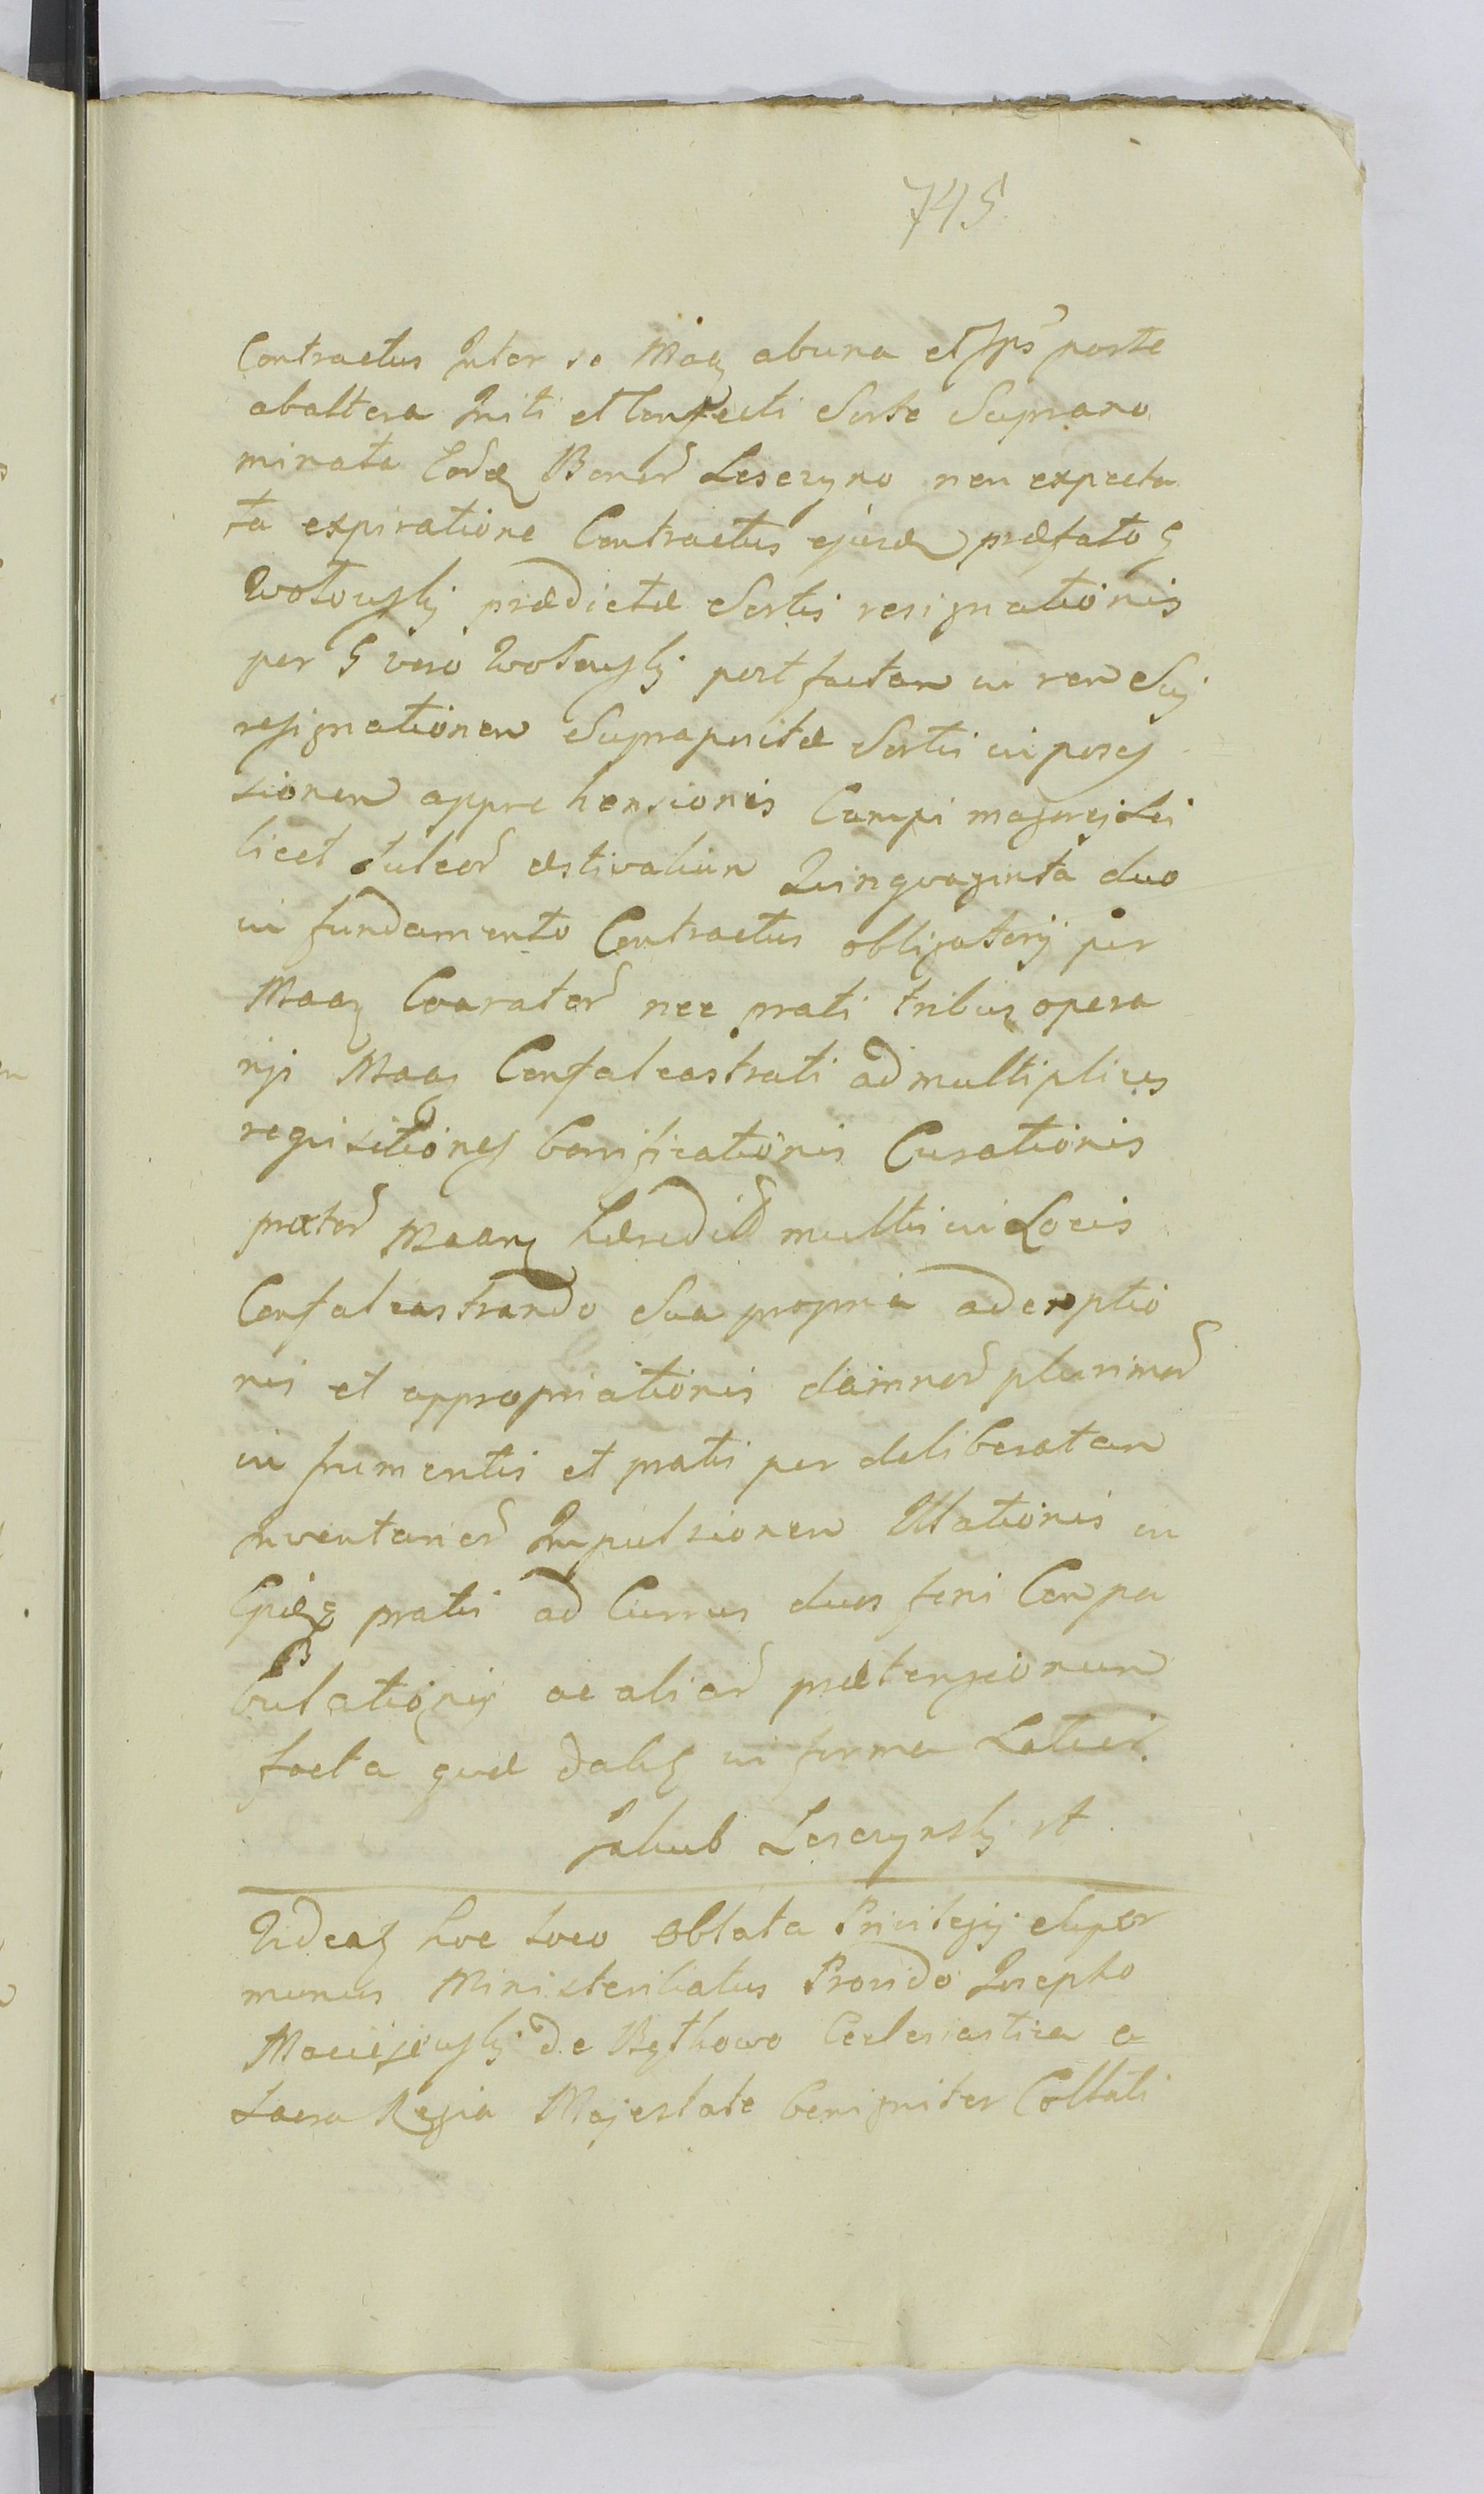 745
Contractus Inter se Mag abuna et Ips parte
abaltera Initi et Confecti Sorte Suprano
minata Eord Bonor Leszczyno non expecta
ta expiratione Contractus ejusd præfato G
Wotowskj prædictæ Sortis resignationis
per G vero Wotowskj post factam in rem Suj
resignationem Suprapositæ Sortis in posses
sionem apprehensionis Campi magoris Sci
licet Sulcor æstivalium Quinquaginta duo
in fundamento Contractus obligatorij per
Mag Coarator nec prati tribus opera
rijs Mag Confalcastrati ad multiplices
requisitiones bonificationis Curationis
prator Magn hæredit multis in Locis
Confalcastrando Sua propria ademptio
nis et appropriationis damnor plurimor
in frumentis et pratis per deliberatam
nventarior Impulsionem Illationis in
pratis ad Currus duos feni Conpa
bulationis ac aliar prætensionum
facta quæ datis in forma Latiori.
Jakub Leszczynskj st.
Videaz hoc loco Oblata Privilegij super
munus Ministerialatus Provido Josepho
Maciejewskj de Bythowo Ecclesiastica a
Sacra Regia Majestate benigniter Collati